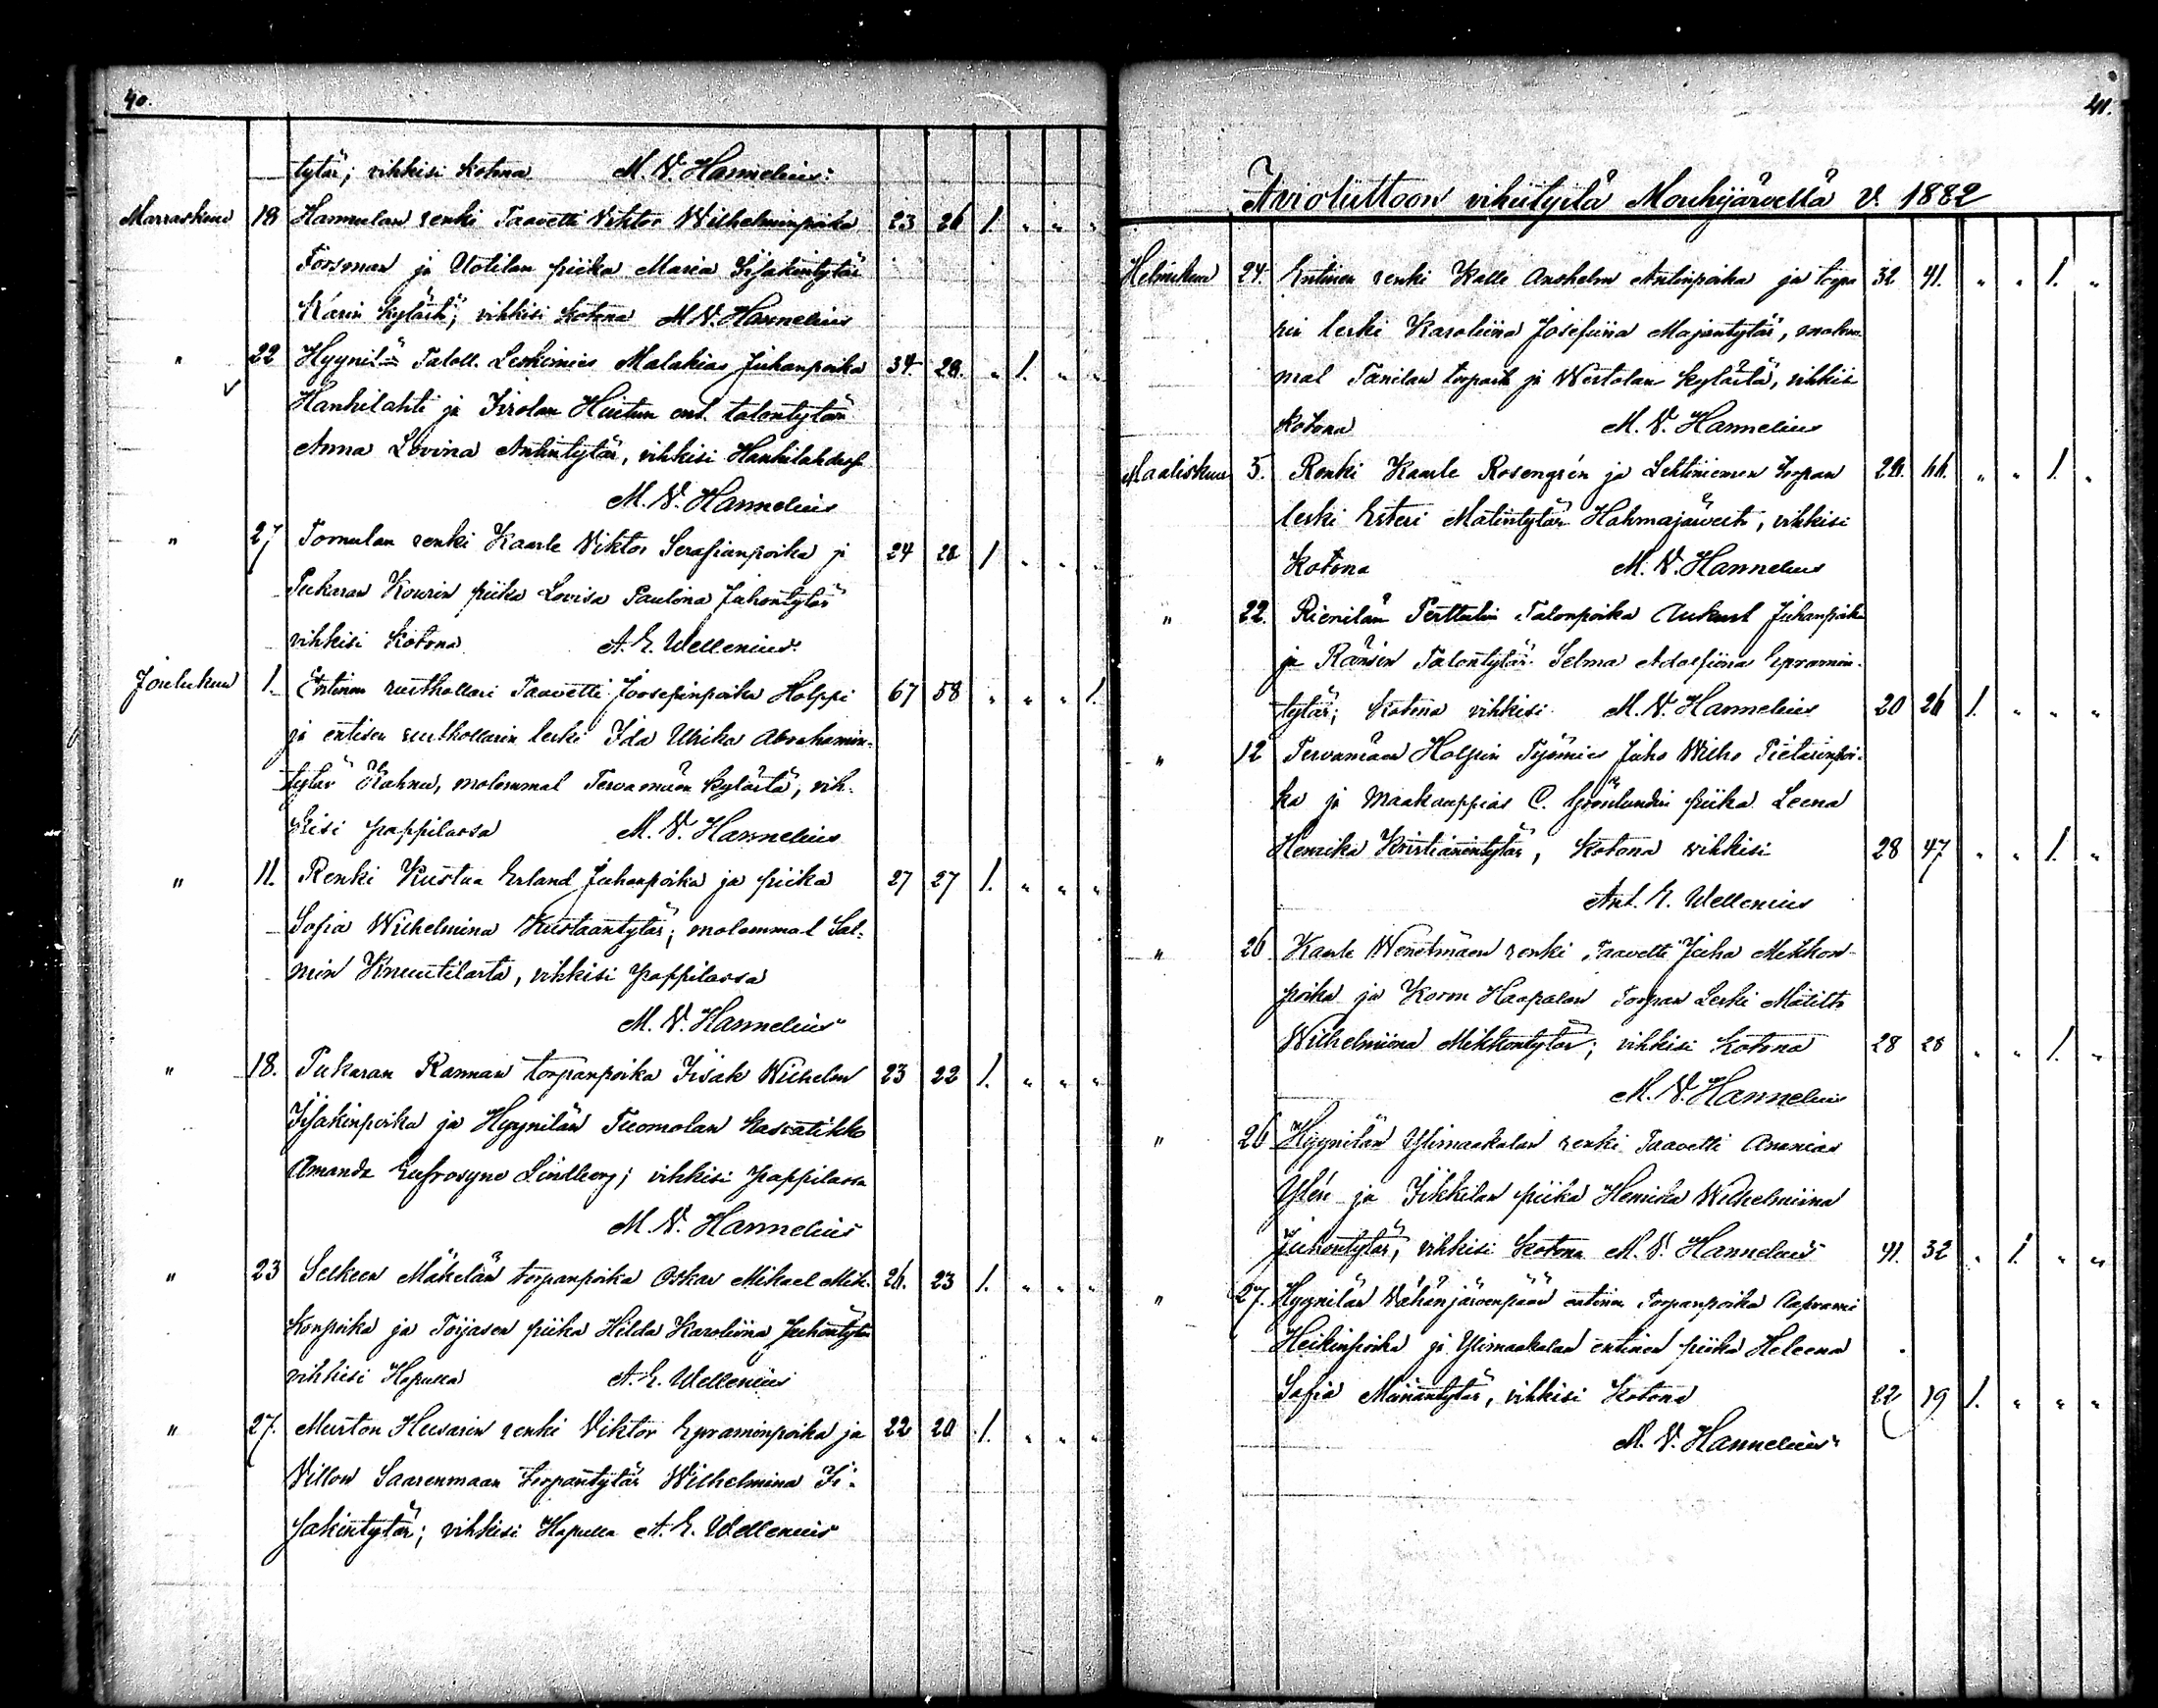 40.
tytär; vihkisi kotona M. V. Hannelius.
Marraskuu 18 Hannulan renki Taavetti Viktor Wilhelminpoika 23 26 1. " " "
Forsman ja Uotilan piika Maria Iisakintytär
Karin kylästä; vihkisi kotona M. V. Hannelius
" 22 Hyynilän Taloll. Leskimies Malakias Juhanpoika 34 28. " 1. " "
Hanhilahti ja Iirolan Huitun ent. talontytär
Anna Lovina Antintytär, vihkisi Hanhilahdesa
M. V. Hannelius
" 27 Tomulan renki Kaarle Viktor Serafianpoika ja 24 28 1 " " "
Pukaran Kourin piika Lovisa Paulina Juhontytär
vihkisi kotona A. E. Wellenius.
Joulukuu 1. Entinen rusthollari Taavetti Joosepinpoika Holppi 67 58 " " " 1.
ja entisen rusthollarin leski Ida Ulrika Abrahamin-
tytär Krahnu, molemmat Tervamäen kylästä, vih-
kisi pappilassa M. V. Hannelius
" 11. Renki Kustaa Erland Juhanpoika ja piika 27 27 1. " " "
Sofia Wilhelmina Kustaantytär; molemmat Sal-
min Knuutilasta, vihkisi pappilassa
M. V. Hannelius
" 18. Pukaran Rannan torpanpoika Iisak Wilhelm 23 22 1. " " "
Iisakinpoika ja Hyynilän Tuomolan kasvatikko
Amanda Eufrosyne Lindberg; vihkisi pappilassa
M. V. Hannelius
" 23 Selkeen Mäkelän torpanpoika Oskar Mikael Mik- 26. 23 1. " " "
konpoika ja Törjasen piika Hilda Karoliina Juhontytär
vihkisi Hapulla A. E. Wellenius
" 27. Murton Husarin renki Viktor Epraminpoika ja 22 20 1. " " "
Villon Saarenmaan torpantytär Wilhelmina Ii-
sakintytär; vihkisi Hapulla A. E. Wellenius
41.
Avioliittoon vihityitä Mouhijärvellä v. 1882
Helmikuu 24. Entinen renki Kalle Anshelm Antinpoika ja torpa 32 41. " " 1. "
rin leski Karoliina Josefiina Majantytär, molem
mat Tanilan torpasta ja Westolan kylästä, vihkisi
kotona M. V. Hannelius
Maaliskuu 5. Renki Kaarle Rosengrén ja Lehtiniemen torpan 28. 66. " " 1. "
leski Esteri Matintytär Hahmajärvestä, vihkisi
Kotona M. V. Hannelius
" 22. Rienilän Perttulin Talonpoika Aukust Juhanpoika
ja Ränsin Talontytär Selma Adolfiina Epramin-
tytär; kotona vihkisi M. V. Hannelius 20 26 1. " " "
" 12 Tervamäen Holpin Työmies Juho Wilho Pietarinpoi-
ka ja Maakauppias C. Grönlundin piika Leena
Henrika Kristianintytär, kotona vihkisi 28 47 " " 1. "
Ant. E. Wellenius
" 26. Kaarle Wenetmäen renki Taavetti Juha Mikkon-
poika ja Korm Haapalan Torpan Leski Matilta
Wilhelmiina Mikkontytär; vihkisi kotona 28 28 " " 1. "
M. V. Hannelius
" 26 Hyynilän Ylimaakalan renki Taavetti Ananias
Ylén ja Iikkilan piika Henrika Wilhelmiina
Juhontytär, vihkisi kotona M. V. Hannelius 41. 32 " 1. " "
" 27. Hyynilän Vähänjärvenpään entinen Torpanpoika Aaprami
Heikinpoika ja Ylimaakalan entinen piika Heleena
Sofia Manantytär, vihkisi kotona 22 19 1. " " "
M. V. Hannelius